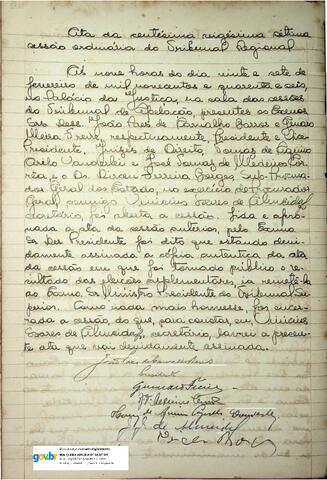 Ata da centésima vigésima sétima
sessão ordinária do Tribunal Regional
Às nove horas do dia vinte e sete de
fevereiro de mil novecentos e quarenta e seis,
no Palácio da Justiça, na sala das sessões
do Tribunal de Apelação, presentes os Exmos
Srs. Des. João Alves de Carvalho Barros e Genaro
Freire, respectivamente, Presidente e Vice-
Presidente, Juizes de Direito, Tomas de Aquino
Cirilo Wanderlei e José Tomaz de
e o Dr. Dirceu Ferreira Borges, Sub-Procura-
dor Geral do Estado, no exercício de Procurador
Geral, comigo Vinicius Soares de Almeida,
secretário, foi aberta a sessão. Lida e apro-
vada a ata da sessão anterior, pelo Exmo
Sr. Des. Presidente foi dito que estando devi-
damente assinada a cópia autentica da ata
da sessão em que foi tornado público o re-
sultado das eleições suplementares, ia remetê-la
ao Exmo. Sr. Ministro Presidente do Tribunal Su-
perior. Como nada mais houvesse, foi encer-
rada a sessão do que, para constar, eu, Vinicius
Soares de Almeida, secretário, lavrei a presen-
te ata que vai devidamente assinada.
Presidente
gov.br